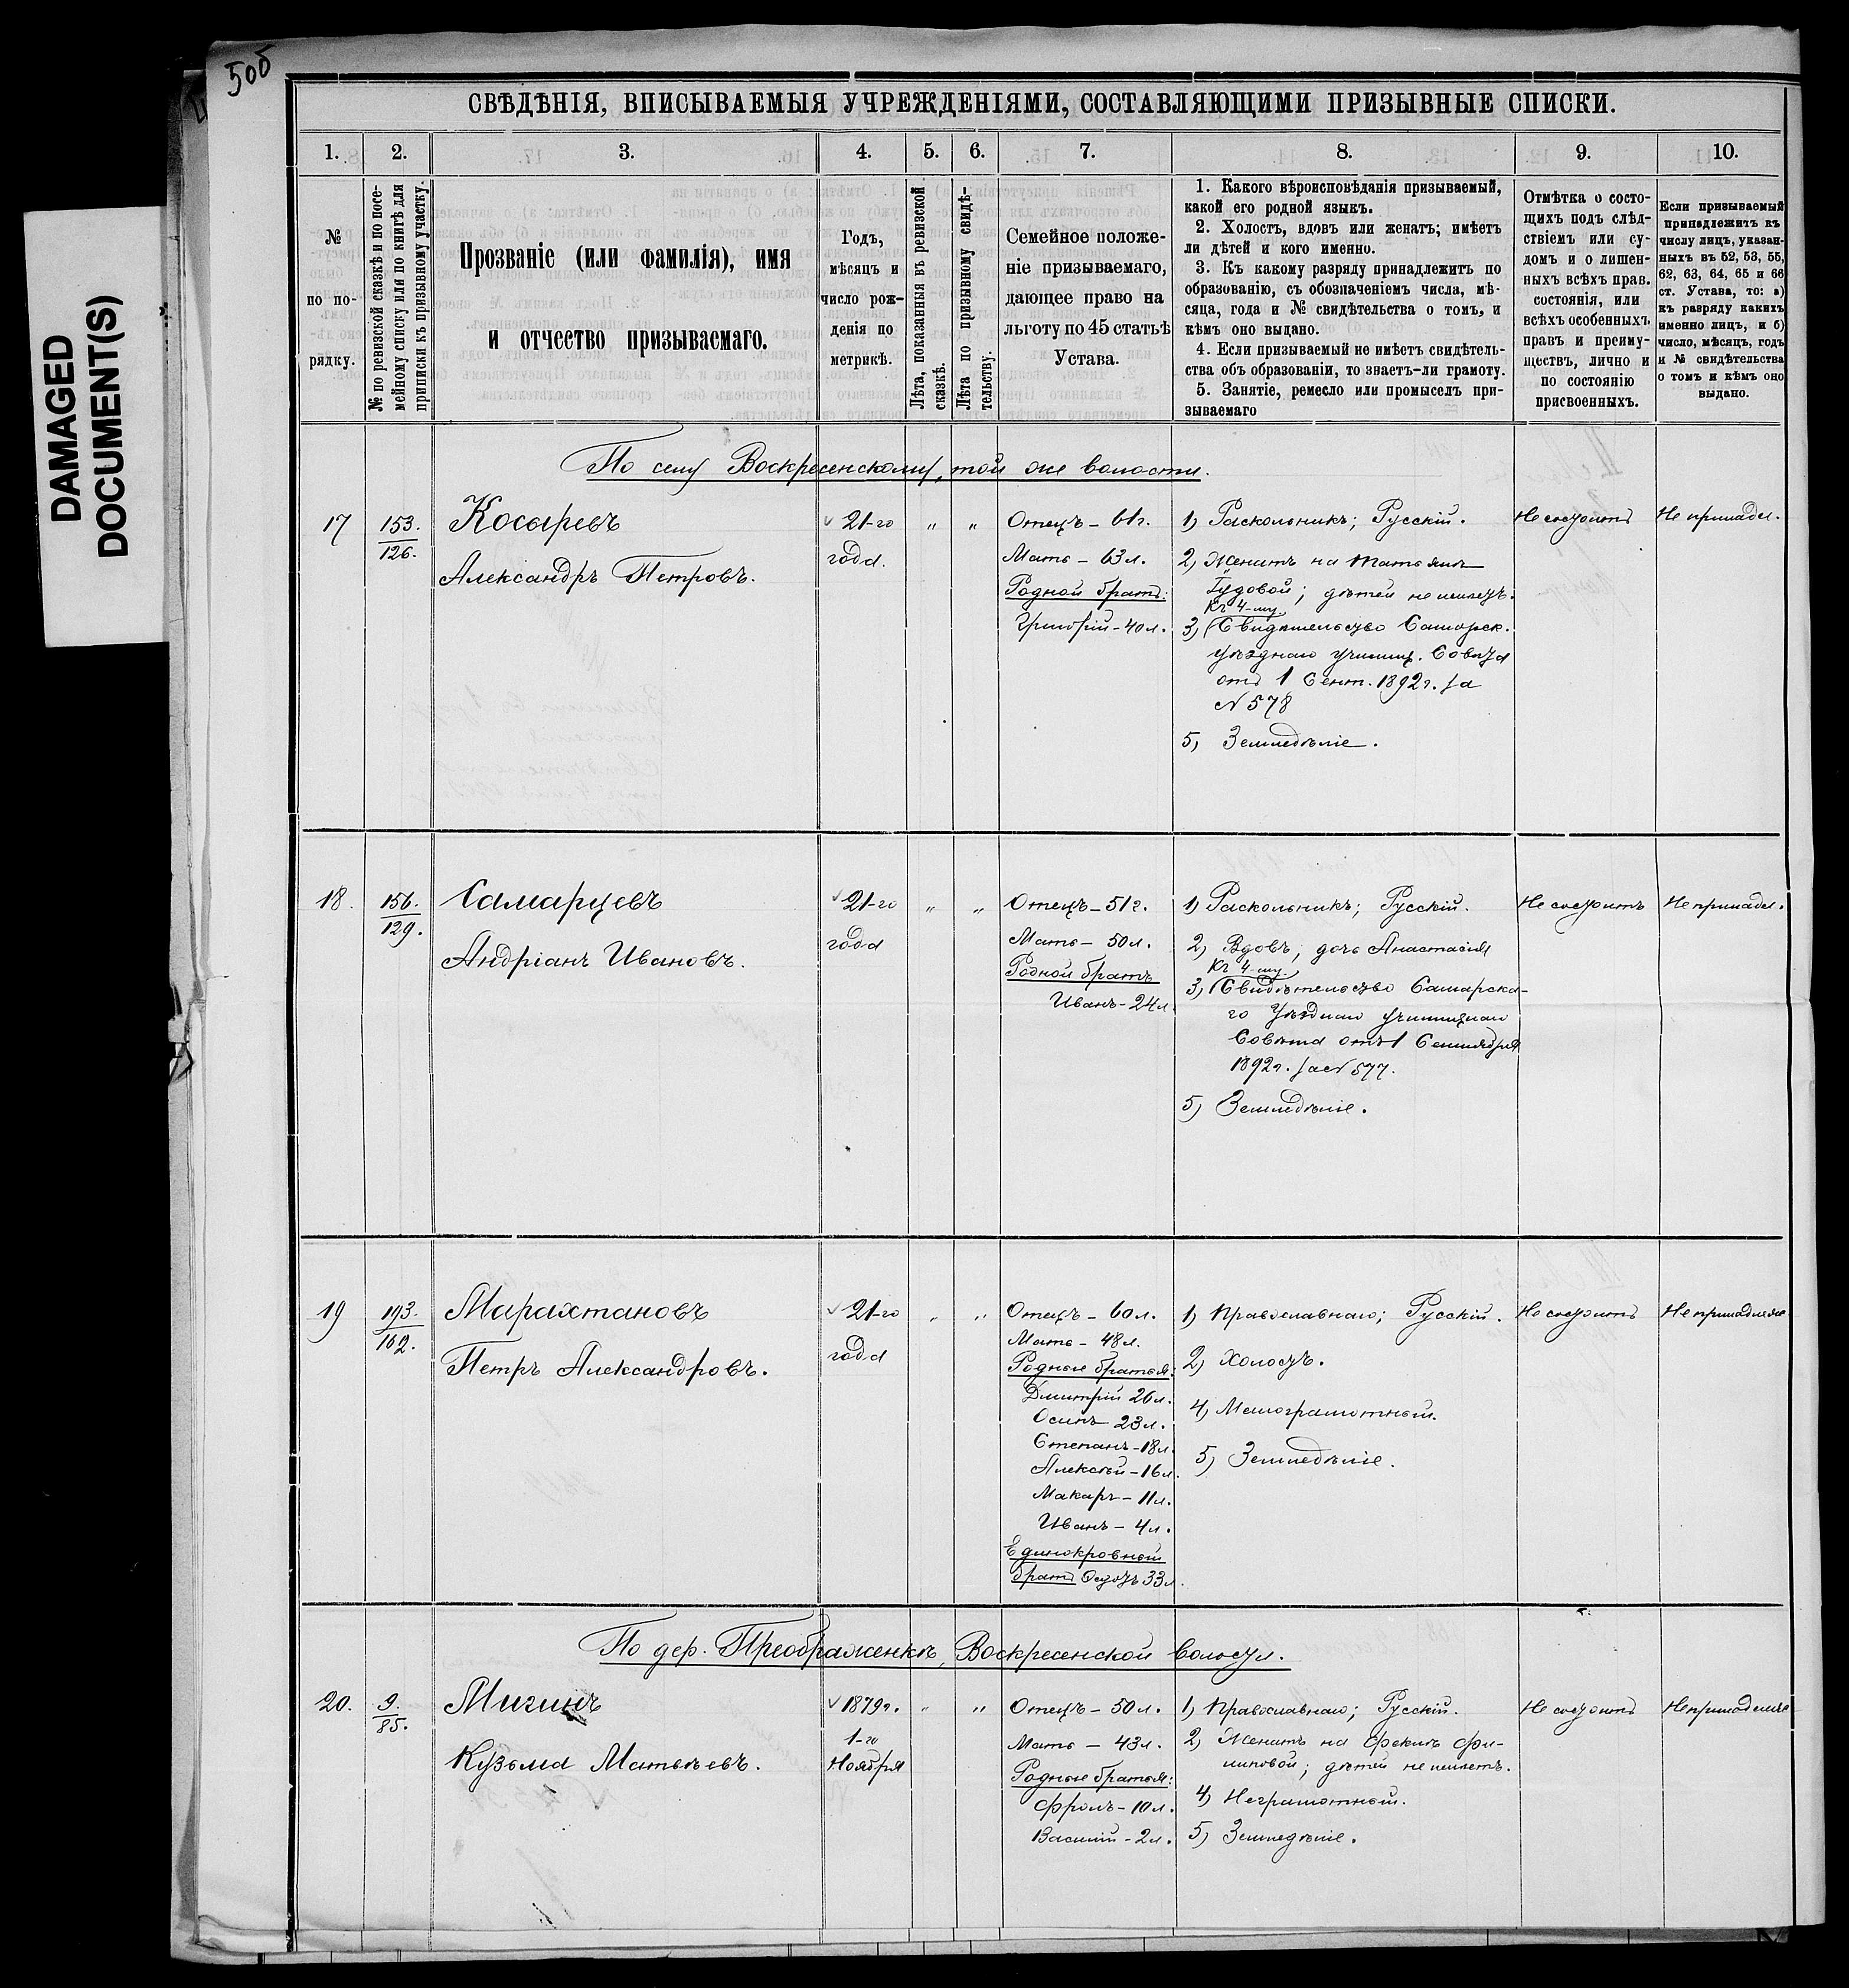 50б
DAMAGED
DOCUMENT(S)
СВѢДѢНІЯ, ВПИСЫВАЕМЫЯ УЧРЕЖДЕНІЯМИ, СОСТАВЛЯЮЩИМИ ПРИЗЫВНЫЕ СПИСКИ.
1. 2. 3. 4. 5. 6. 7. 8. 9. 10.
№
по по-
рядку.
№ по ревизской сказкѣ и по посе-
мейному списку или по книгѣ для
приписки къ призывному участку.
Прозваніе (или фамилія), имя
и отчество призываемаго.
Годъ,
мѣсяцъ и
число рож-
денія по
метрикѣ.
Лѣта, показанныя въ ревизской
сказкѣ.
Лѣта по призывному свидѣ-
тельству.
Семейное положе-
ніе призываемаго,
дающее право на
льготу по 45 статьѣ
Устава.
1. Какого вѣроисповѣданія призываемый,
какой его родной языкъ.
2. Холостъ, вдовъ или женатъ; имѣетъ
ли дѣтей и кого именно.
3. Къ какому разряду принадлежитъ по
образованію, съ обозначеніемъ числа, мѣ-
сяца, года и № свидѣтельства о томъ, и
кѣмъ оно выдано.
4. Если призываемый не имѣетъ свидѣтель-
ства объ образованіи, то знаетъ-ли грамоту.
5. Занятіе, ремесло или промыселъ при-
зываемаго
Отмѣтка о состо-
щихъ подъ слѣд-
ствіемъ или су-
домъ и о лишен-
ныхъ всѣхъ прав.
состоянія, или
всѣхъ особенныхъ
правъ и преиму-
ществъ, лично и
по состоянію
присвоенныхъ.
Если призываемый
принадлежитъ къ
числу лицъ, указан-
ныхъ въ 52, 53, 55,
62, 63, 64, 65 и 66
ст. Устава, то: а)
къ разряду какихъ
именно лицъ, и б)
число, мѣсяцъ, годъ
и № свидѣтельства
о томъ и кѣмъ оно
выдано.
По селу Воскресенскому, той же волости.
17
153.
126.
Косыревъ
Александръ Петровъ.
21-го
года.
" "
Отецъ - 61 г.
Мать - 63 л.
Родной братъ:
Григорій - 40 л.
1) Раскольникъ; Русскій.
2) Женатъ на Татьянѣ
Гудовой; дѣтей не имѣетъ.
Къ 4-му.
3) Свидѣтельство Самарск.
уѣзднаго училищ. Совѣта
отъ 1 Сент. 1892 г. за
№ 578
5) Земледѣліе.
Не состоитъ
Не принадл.
18.
156.
129.
Самарцевъ
Андріанъ Ивановъ.
21-го
года
" "
Отецъ - 51 г.
Мать - 50 л.
Родной братъ
Иванъ - 24 л.
1) Раскольникъ; Русскій.
2) Вдовъ, дочь Анастасія
Къ 4-му.
3) Свидѣтельство Самарска-
го Уѣзднаго училищнаго
Совѣта отъ 1 Сентября
1892 г. за № 577.
5) Земледѣліе.
Не состоитъ
Не принадл.
19
193.
162.
Марахтановъ
Петръ Александровъ.
21-го
года
" "
Отецъ - 60 л.
Мать - 48 л.
Родные братья:
Дмитрій 26 л.
Осипъ 23 л.
Степанъ - 18 л.
Алексѣй - 16 л.
Макаръ - 11 л.
Иванъ - 4 л.
Единокровный
братъ Федотъ 33 л.
1) Православнаго; Русскій.
2) Холостъ.
4) Малограмотный.
5) Земледѣліе.
Не состоитъ
Не принадлеж
По дер. Преображенкѣ, Воскресенской волости.
20.
9.
85.
Мигинъ
Кузьма Матвѣевъ.
1879 г.
1-го
Ноября
" "
Отецъ - 50 л.
Мать - 43 л.
Родные братья:
Фролъ - 10 л.
Василій - 2 л.
1) Православнаго; Русскій.
2) Женатъ на Феклѣ Фи-
липовой; дѣтей не имѣетъ.
4) Неграмотный.
5) Земледѣліе.
Не состоитъ
Не принадлеж